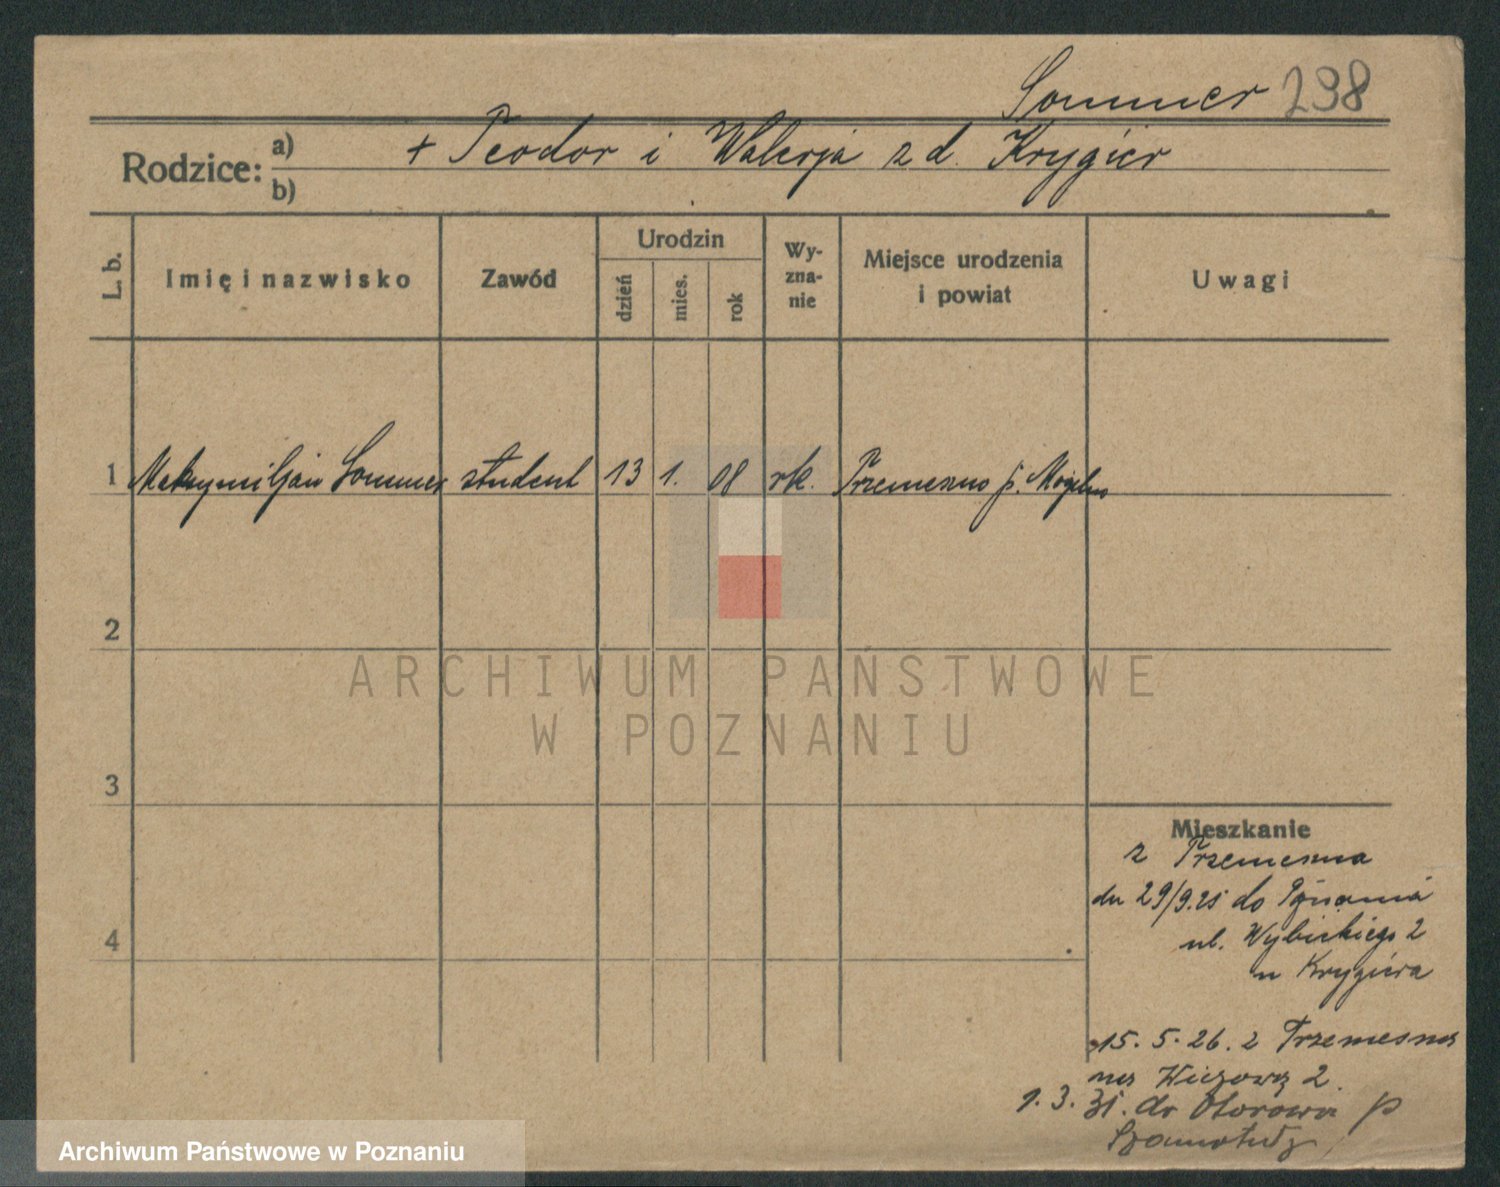 Sommer 298
Rodzice: a) + Teodor i Walerja z d. Krygier
b)
L. b.
Imię i nazwisko
Zawód
Urodzin
dzień
mies.
rok
Wy-
zna-
nie
Miejsce urodzenia
i powiat
Uwagi
1 Maksymiljan Sommer student 13 1. 08 rk. Trzemeszno p. Mogilno
2
3
4
ARCHIWUM PAŃSTWOWE
W POZNANIU
Mieszkanie
z Trzemeszna
dn 29/9.25 do Poznania
ul. Wybickiego 2
u Krygiera
15. 5. 26. z Trzemeszna
na 2.
1. 3. 31. do Otorowa p
Szamotuły
Archiwum Państwowe w Poznaniu